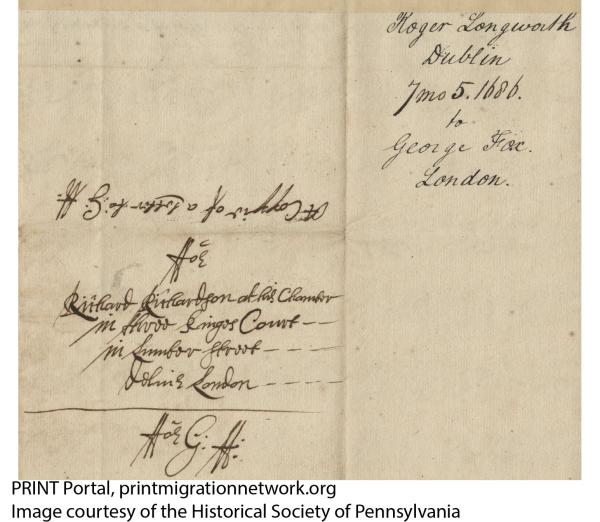 Roger Longworth
Dublin
7mo 5. 1686.
to
George Fox.
London.
A Coppie of a letter to G: ff.
ffor
Richard Richardson at his Chamber
in three Kinges Court —
in Lumber street — — —
London — — — —
ffor G: ff:
PRINT Portal, printmigrationnetwork.org
Image courtesy of the Historical Society of Pennsylvania